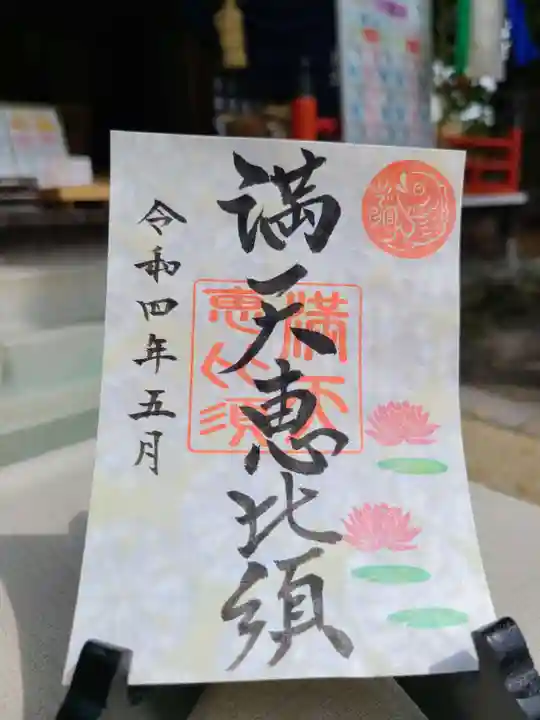 満天恵比須
満天
恵比須
令和四年五月